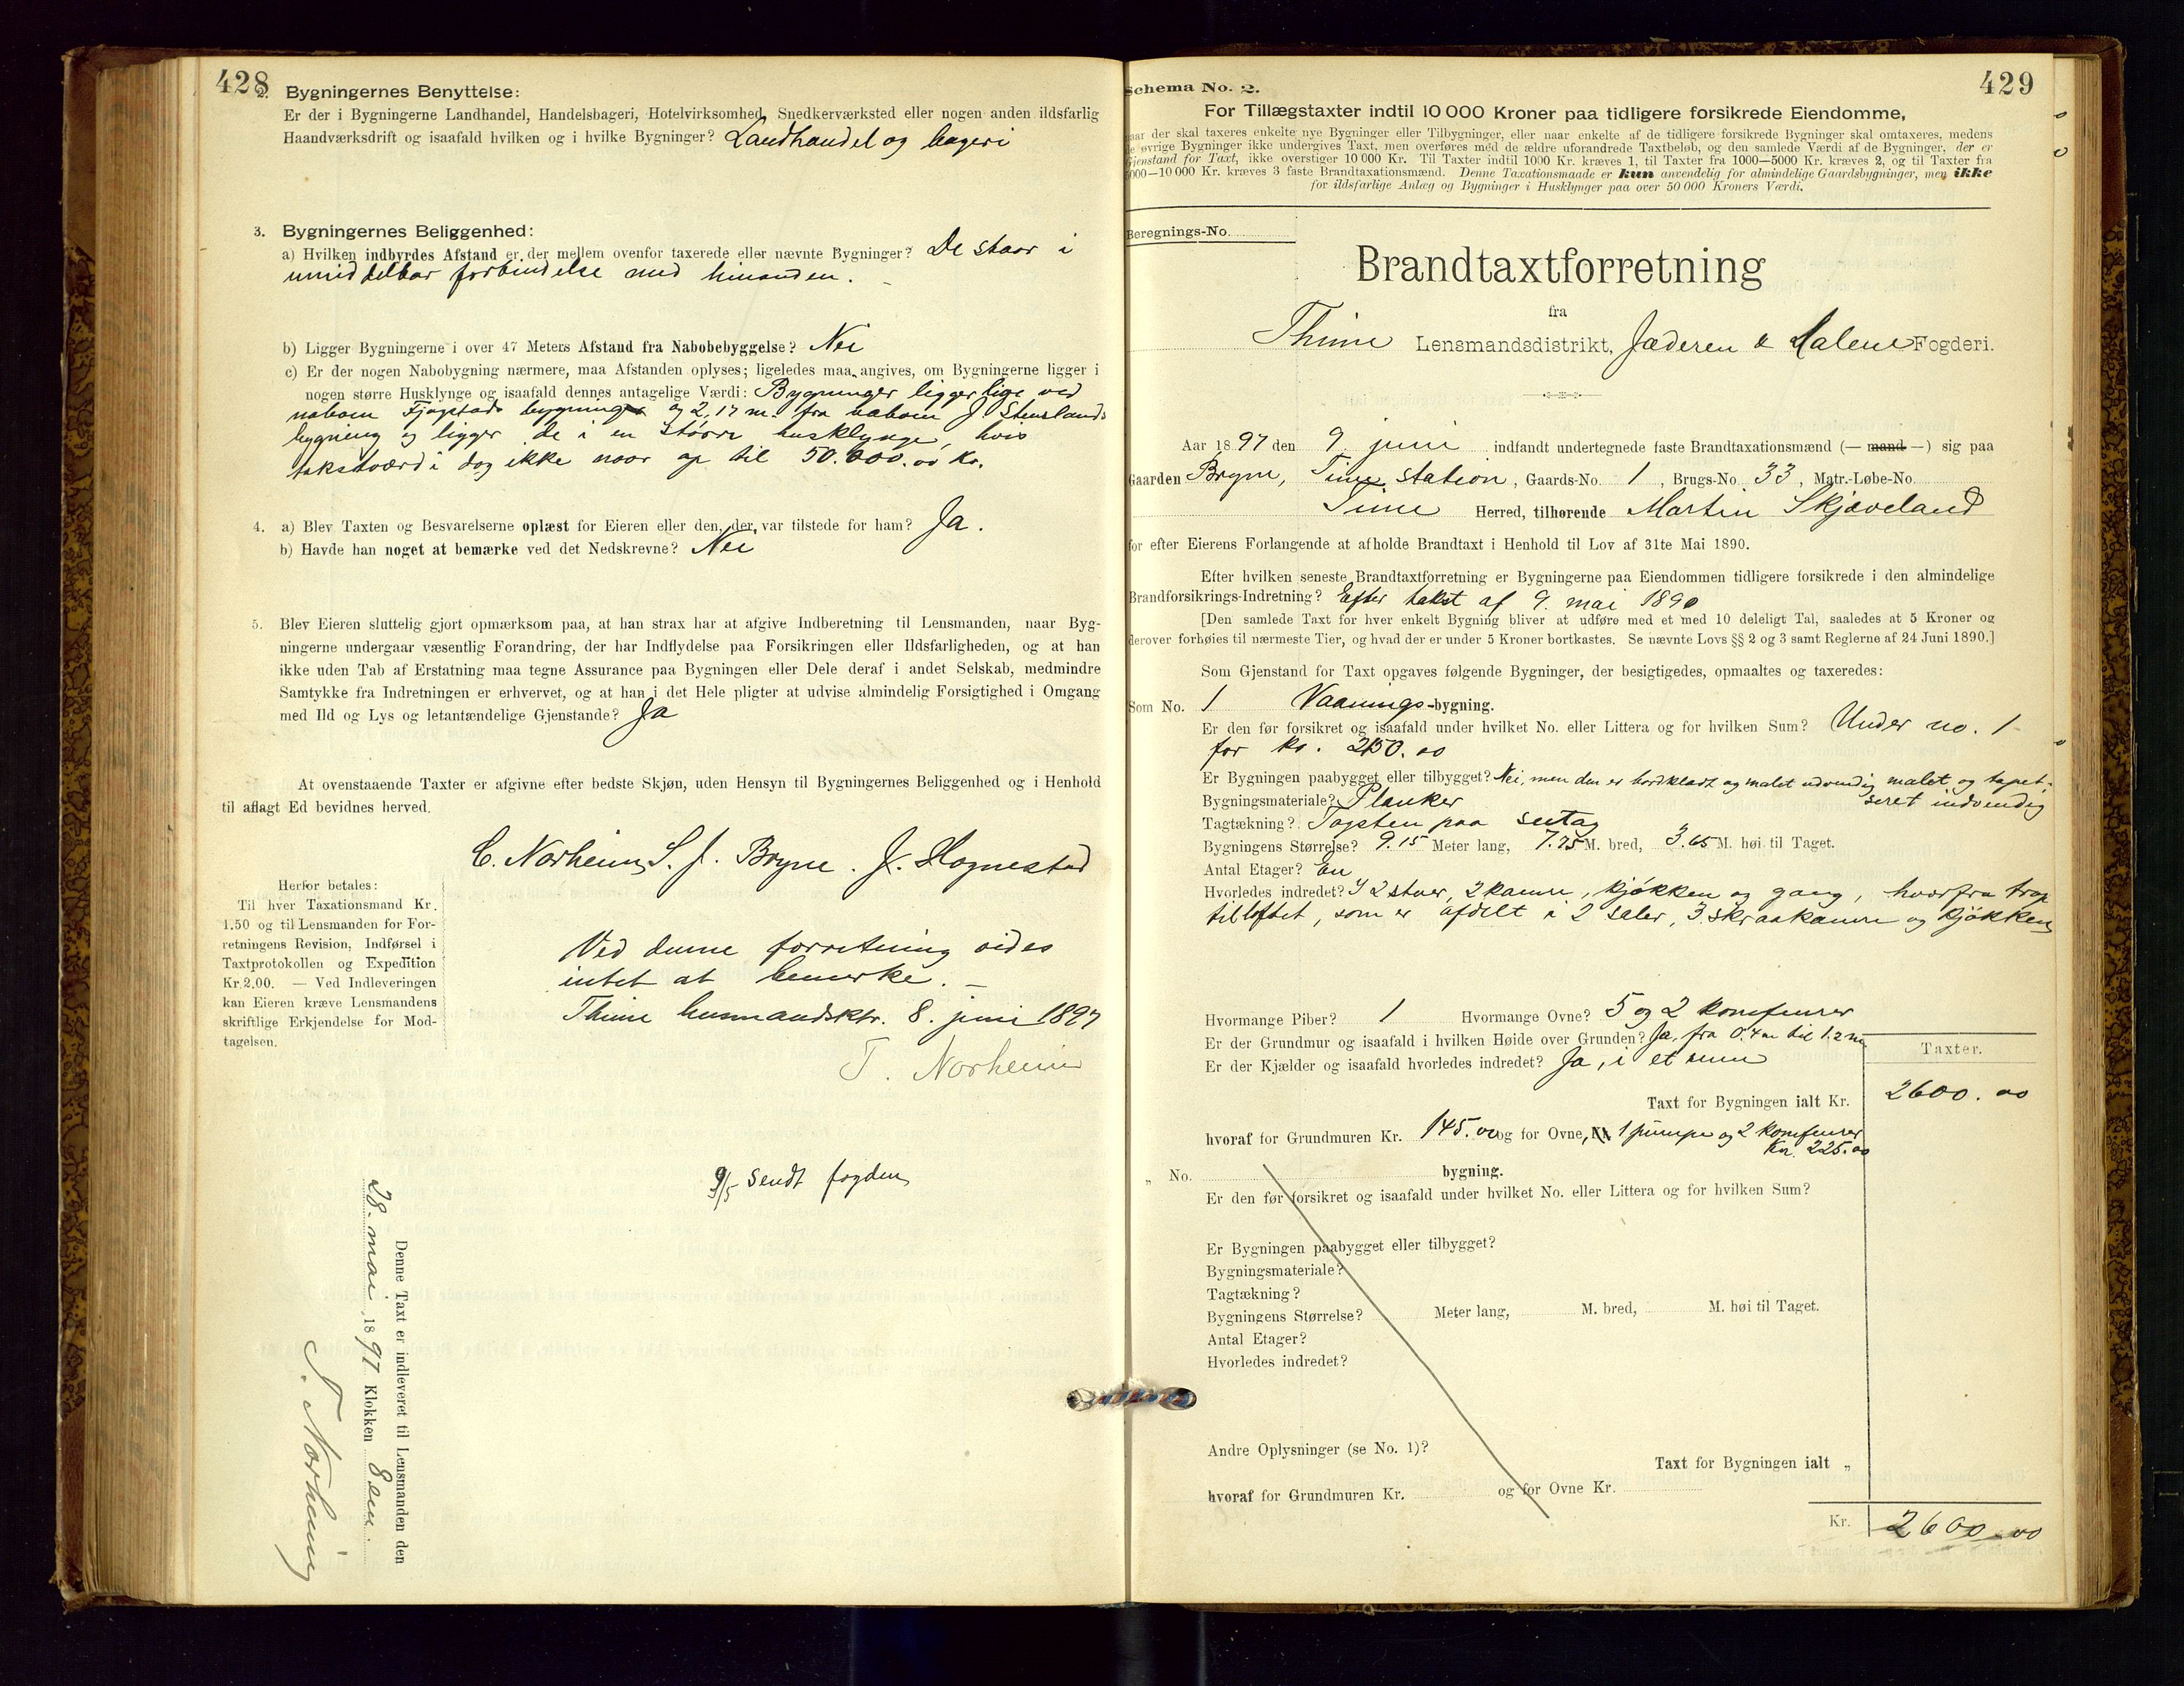 428
2. Bygningernes Benyttelse:
Er der i Bygningerne Landhandel, Handelsbageri, Hotelvirksomhed, Snedkerværksted eller nogen anden ildsfarlig
Haandværksdrift og isaafald hvilken og i hvilke Bygninger? Landhandel og bageri
3. Bygningernes Beliggenhed:
a) Hvilken indbyrdes Afstand er der mellem ovenfor taxerede eller nævnte Bygninger? De staar i
umiddelbar forbindelse med hinanden.
b) Ligger Bygningerne i over 47 Meters Afstand fra Nabobebyggelse? Nei
c) Er der nogen Nabobygning nærmere, maa Afstanden oplyses; ligeledes maa angives, om Bygningerne ligger i
nogen større Husklynge og isaafald dennes antagelige Værdi: Bygninger ligger lige ved
naboen bygning og 2,17 m. fra naboen J.
bygning og ligger de i en større husklynge, hvis
takstværdi dog ikke naar op til 50.000.00 Kr.
4. a) Blev Taxten og Besvarelserne oplæst for Eieren eller den, der var tilstede for ham? Ja.
b) Havde han noget at bemærke ved det Nedskrevne? Nei
5. Blev Eieren sluttelig gjort opmærksom paa, at han strax har at afgive Indberetning til Lensmanden, naar Byg-
ningerne undergaar væsentlig Forandring, der har Indflydelse paa Forsikringen eller Ildsfarligheden, og at han
ikke uden Tab af Erstatning maa tegne Assurance paa Bygningen eller Dele deraf i andet Selskab, medmindre
Samtykke fra Indretningen er erhvervet, og at han i det Hele pligter at udvise almindelig Forsigtighed i Omgang
med Ild og Lys og letantændelige Gjenstande? Ja
At ovenstaaende Taxter er afgivne efter bedste Skjøn, uden Hensyn til Bygningernes Beliggenhed og i Henhold
til aflagt Ed bevidnes herved.
C. Norheim S. J. Bryne. J. Hognestad
Herfor betales:
Til hver Taxationsmand Kr.
1.50 og til Lensmanden for For-
retningens Revision, Indførsel i
Taxtprotokollen og Expedition
Kr. 2.00. — Ved Indleveringen
kan Eieren kræve Lensmandens
skriftlige Erkjendelse for Mod-
tagelsen.
Ved denne forretning vides
intet at bemerke.
Thime lensmandsktr. 8. juni 1897
T. Norheim
9/5 sendt fogden
Denne Taxt er indleveret til Lensmanden den
28. mai 1897 Klokken 8 em.
T. Norheim
429
Schema No. 2.
For Tillægstaxter indtil 10 000 Kroner paa tidligere forsikrede Eiendomme,
naar der skal taxeres enkelte nye Bygninger eller Tilbygninger, eller naar enkelte af de tidligere forsikrede Bygninger skal omtaxeres, medens
de øvrige Bygninger ikke undergives Taxt, men overføres med de ældre uforandrede Taxtbeløb, og den samlede Værdi af de Bygninger, der er
Gjenstand for Taxt, ikke overstiger 10 000 Kr. Til Taxter indtil 1000 Kr. kræves 1, til Taxter fra 1000—5000 Kr. kræves 2, og til Taxter fra
5000—10 000 Kr. kræves 3 faste Brandtaxationsmænd. Denne Taxationsmaade er kun anvendelig for almindelige Gaardsbygninger, men ikke
for ildsfarlige Anlæg og Bygninger i Husklynger paa over 50 000 Kroners Værdi.
Beregnings-No.
Brandtaxtforretning
fra
Thime Lensmandsdistrikt, Jæderen & Dalene Fogderi.
Aar 1897 den 9. juni indfandt undertegnede faste Brandtaxationsmænd (— mand —) sig paa
Gaarden Bryne, Time station, Gaards-No. 1, Brugs-No. 33, Matr.-Løbe-No.
Time Herred, tilhørende Martin Skjæveland
for efter Eierens Forlangende at afholde Brandtaxt i Henhold til Lov af 31te Mai 1890.
Efter hvilken seneste Brandtaxtforretning er Bygningerne paa Eiendommen tidligere forsikrede i den almindelige
Brandforsikrings-Indretning? Efter takst af 9. mai 1890
[Den samlede Taxt for hver enkelt Bygning bliver at udføre med et med 10 deleligt Tal, saaledes at 5 Kroner og
derover forhøies til nærmeste Tier, og hvad der er under 5 Kroner bortkastes. Se nævnte Lovs §§ 2 og 3 samt Reglerne af 24 Juni 1890.]
Som Gjenstand for Taxt opgaves følgende Bygninger, der besigtigedes, opmaaltes og taxeredes:
Som No. 1 Vaanings-bygning.
Er den før forsikret og isaafald under hvilket No. eller Littera og for hvilken Sum? Under no. 1
for kr. 2150.00
Er Bygningen paabygget eller tilbygget? Nei, men den er bordklædt og malet udvendig malet og tapet-
seret indvendig
Bygningsmateriale? Planker
Tagtækning? Tagsten paa sutag
Bygningens Størrelse? 9.15 Meter lang, 7.75 M. bred, 3.65 M. høi til Taget.
Antal Etager? En
Hvorledes indredet? I 2 stuer, 2 kamre, kjøkken og gang, hvorfra trap
til loftet, som er afdelt i 2 saler, 3 skraakamre og kjøkken
Hvormange Piber? 1 Hvormange Ovne? 5 og 2 komfurer
Er der Grundmur og isaafald i hvilken Høide over Grunden? Ja, fra 0.4 m til 1.2 m
Er der Kjælder og isaafald hvorledes indredet? Ja, i et rum
Taxter.
Taxt for Bygningen ialt Kr. 2600.00
hvoraf for Grundmuren Kr. 145.00 og for Ovne, 1 pumpe og 2 komfurer
Kr. 225.00
„ No. bygning.
Er den før forsikret og isaafald under hvilket No. eller Littera og for hvilken Sum?
Er Bygningen paabygget eller tilbygget?
Bygningsmateriale?
Tagtækning?
Bygningens Størrelse? Meter lang, M. bred, M. høi til Taget.
Antal Etager?
Hvorledes indredet?
Andre Oplysninger (se No. 1)?
Taxt for Bygningen ialt „
hvoraf for Grundmuren Kr. og for Ovne Kr.
Kr. 2600.00